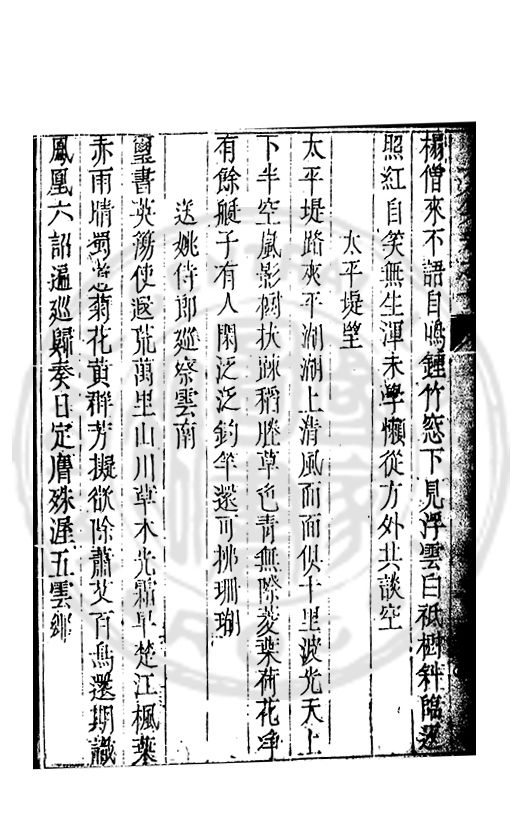 榻僧來不語自鳴鍾竹窓下見浮雲白祇樹斜臨返
照紅自笑無生渾未學懶從方外共談空
太平堤望
太平堤路夾平湖湖上清風面面俱十里波光天上
下半空嵐影樹扶踈稻塍草色青無際菱葉荷花淨
有餘艇子有人閑泛泛釣竿還可拂珊瑚
送姚侍郎廵察雲南
璽書英簜使遐荒萬里山川草木光霜早楚江楓葉
赤雨晴蜀道菊花黄群芳擬欲除蕭艾百鳥還期識
鳳凰六詔遍廵歸奏日定膺殊渥五雲鄉